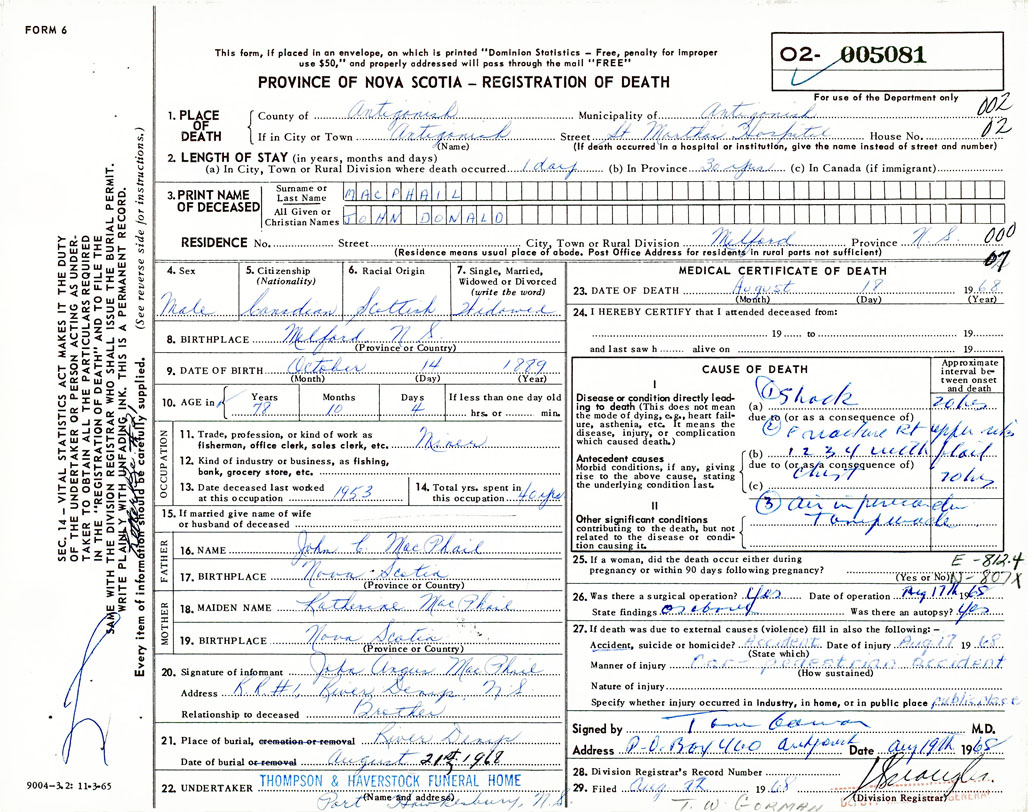 FORM 6
This form, if placed in an envelope, on which is printed "Dominion Statistics — Free, penalty for improper
use $50," and properly addressed will pass through the mail "FREE"
PROVINCE OF NOVA SCOTIA — REGISTRATION OF DEATH
02- 005081
For use of the Department only
002
02
1. PLACE OF DEATH
County of Antigonish Municipality of Antigonish
If in City or Town Antigonish Street St Marthas Hospital House No.
(Name) (If death occurred in a hospital or institution, give the name instead of street and number)
2. LENGTH OF STAY (in years, months and days)
(a) In City, Town or Rural Division where death occurred 1 day (b) In Province 30 yrs (c) In Canada (if immigrant)
3. PRINT NAME OF DECEASED
Surname or Last Name MACPHAIL
All Given or Christian Names JOHN DONALD
RESIDENCE No. Street City, Town or Rural Division Melford Province N.S. 000
(Residence means usual place of abode. Post Office Address for residents in rural parts not sufficient) 07
4. Sex Male
5. Citizenship (Nationality) Canadian
6. Racial Origin Scottish
7. Single, Married, Widowed or Divorced (write the word) Widowed
8. BIRTHPLACE Melford N.S.
(Province or Country)
9. DATE OF BIRTH October 14 1889
(Month) (Day) (Year)
10. AGE in Years 78 Months 10 Days 4 If less than one day old hrs. or min.
OCCUPATION
11. Trade, profession, or kind of work as fisherman, office clerk, sales clerk, etc. Miner
12. Kind of industry or business, as fishing, bank, grocery store, etc.
13. Date deceased last worked at this occupation 1953
14. Total yrs. spent in this occupation 40 yrs
15. If married give name of wife or husband of deceased
FATHER
16. NAME John C. MacPhail
17. BIRTHPLACE Nova Scotia
(Province or Country)
MOTHER
18. MAIDEN NAME Katherine MacPhail
19. BIRTHPLACE Nova Scotia
(Province or Country)
20. Signature of informant John Angus MacPhail
Address R.R#1, River Denys, N.S
Relationship to deceased Brother
21. Place of burial, cremation or removal River Denys
Date of burial or removal August 21st 1968
22. UNDERTAKER THOMPSON & HAVERSTOCK FUNERAL HOME
(Name and address)
Port Hawkesbury, N.S.
MEDICAL CERTIFICATE OF DEATH
23. DATE OF DEATH August 18 1968
(Month) (Day) (Year)
24. I HEREBY CERTIFY that I attended deceased from:
19 to 19
and last saw h alive on 19
CAUSE OF DEATH
Approximate interval between onset and death
I
Disease or condition directly leading to death (This does not mean the mode of dying, e.g., heart failure, asthenia, etc. It means the disease, injury, or complication which caused death.)
(a) ① Shock 20 hrs
due to (or as a consequence of)
② Fracture Rt upper ribs
Antecedent causes
Morbid conditions, if any, giving rise to the above cause, stating the underlying condition last.
(b) 1 2 3 4 with flail
due to (or as a consequence of)
chest
(c) 20 hrs
II
Other significant conditions
contributing to the death, but not related to the disease or condition causing it.
③ Air in pericardium
Tamponade
25. If a woman, did the death occur either during pregnancy or within 90 days following pregnancy?
(Yes or No)
E -812.4
N-807X
26. Was there a surgical operation? Yes Date of operation Aug 17th 1968
State findings as above Was there an autopsy? Yes
27. If death was due to external causes (violence) fill in also the following:—
Accident, suicide or homicide? Accident Date of injury Aug 17 1968
(State which)
Manner of injury Car - pedestrian accident
(How sustained)
Nature of injury
Specify whether injury occurred in Industry, in home, or in public place public place
Signed by M.D.
Address P.O. Box 460 Antigonish Date Aug 19th 1968
28. Division Registrar's Record Number
29. Filed Aug 22 1968
(Division Registrar)
T. W. GORMAN
DEPUTY REGISTRAR GENERAL
9004-3.2: 11-3-65
SEC. 14 – VITAL STATISTICS ACT MAKES IT THE DUTY
OF THE UNDERTAKER OR PERSON ACTING AS UNDERTAKER
TO OBTAIN ALL THE PARTICULARS REQUIRED
IN THE "REGISTRATION OF DEATH" AND TO FILE THE
SAME WITH THE DIVISION REGISTRAR WHO SHALL ISSUE THE BURIAL PERMIT.
WRITE PLAINLY WITH UNFADING INK. THIS IS A PERMANENT RECORD.
Every item of information should be carefully supplied. (See reverse side for instructions.)